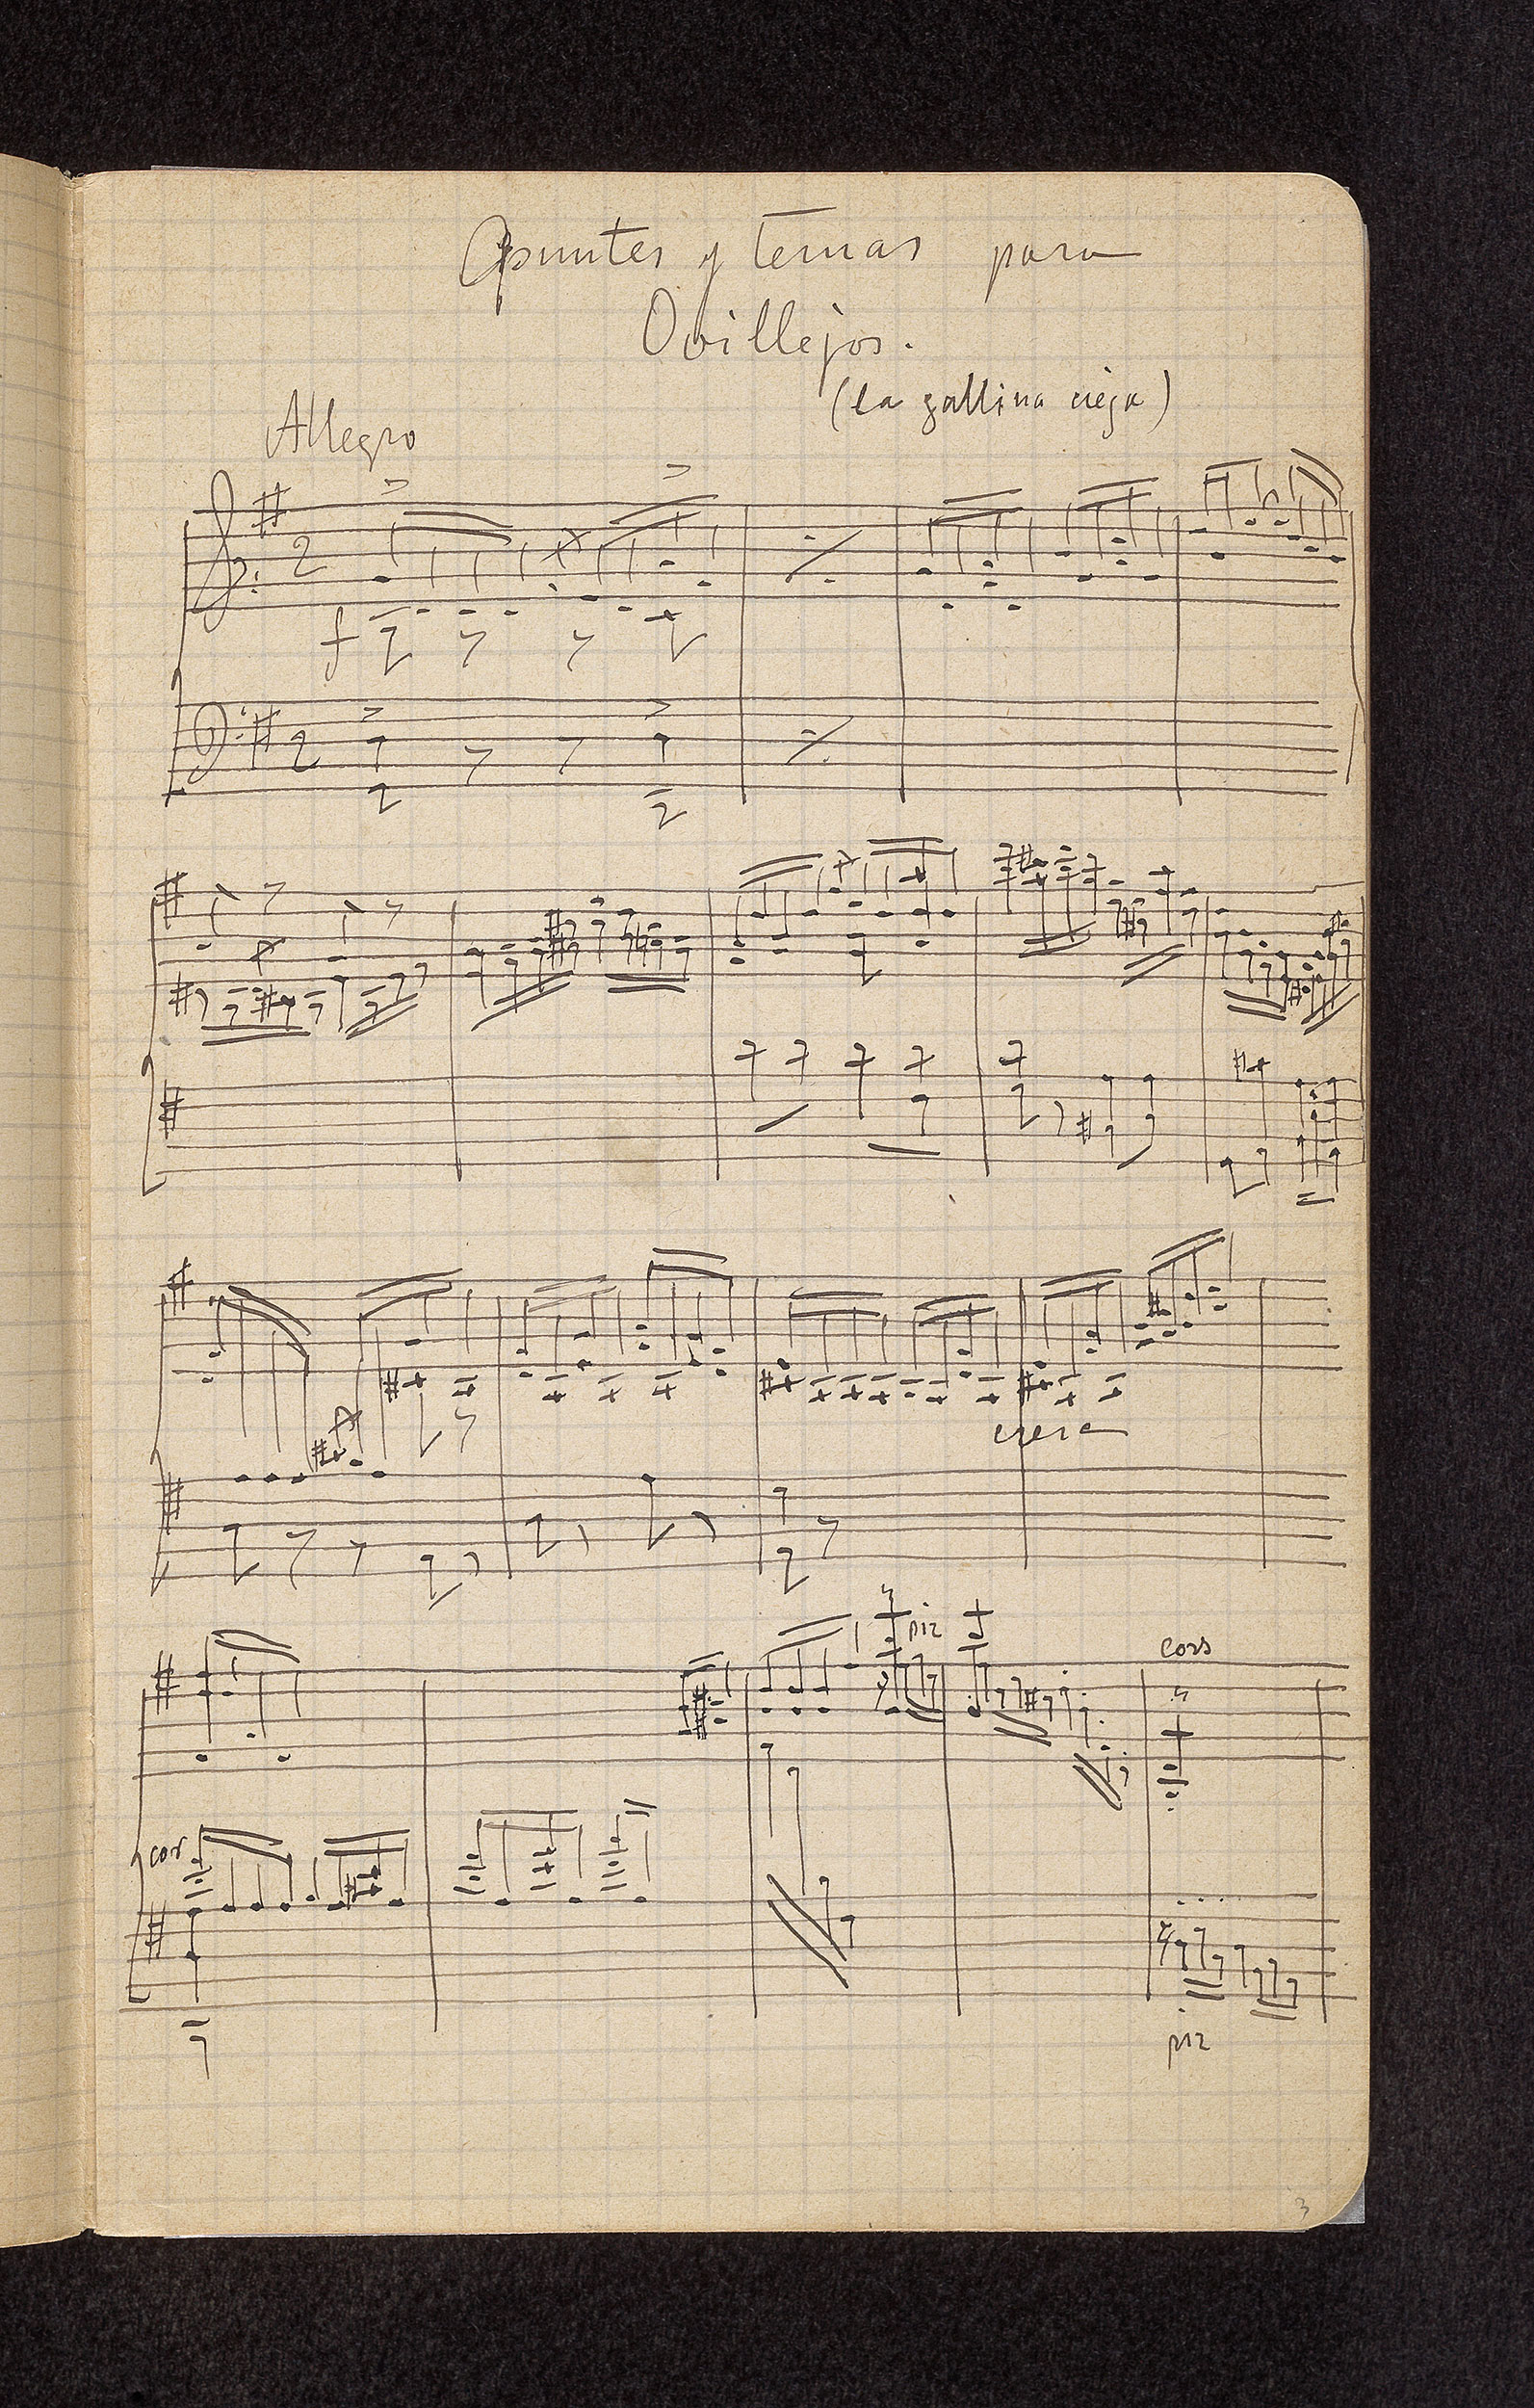 Apuntes y temas para
Ovillejos.
(la gallina ciega)
Allegro
2
f
2
cresc
piz
cors
cor
piz
3